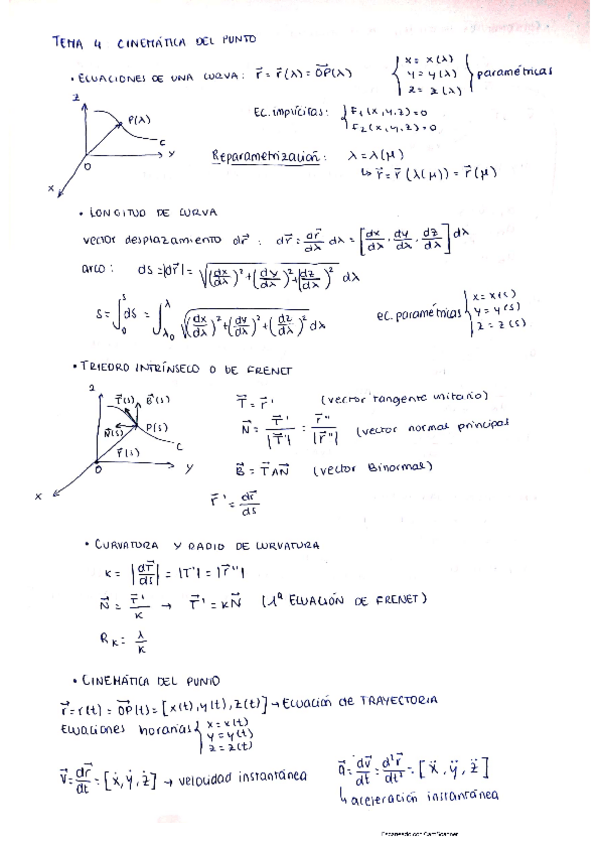 TEMA 4 CINEMÁTICA DEL PUNTO
• ECUACIONES DE UNA CURVA: r⃗ = r⃗(λ) = OP⃗(λ) { x = x(λ) y = y(λ) z = z(λ) } paramétricas
Z P(λ) C O Y X
EC. implícitas: { F₁(x,y,z)=0 F₂(x,y,z)=0
Reparametrización: λ = λ(μ)
↳ r⃗ = r⃗(λ(μ)) = r⃗(μ)
• LONGITUD DE CURVA
vector desplazamiento dr⃗ : dr⃗ = dr⃗/dλ dλ = [dx/dλ, dy/dλ, dz/dλ] dλ
arco: ds = |dr⃗| = √((dx/dλ)² + (dy/dλ)² + (dz/dλ)²) dλ
s = ∫₀ˢ ds = ∫_λ₀^λ √((dx/dλ)² + (dy/dλ)² + (dz/dλ)²) dλ ec. paramétricas { x = x(s) y = y(s) z = z(s)
• TRIEDRO INTRÍNSELO O DE FRENET
z T⃗(s) B⃗(s) N⃗(s) P(s) r⃗(s) C O Y X
T⃗ = r⃗' (vector tangente unitario)
N⃗ = T⃗'/|T⃗'| = r⃗''/|r⃗''| (vector normal principal)
B⃗ = T⃗∧N⃗ (vector Binormal)
r⃗' = dr⃗/ds
• CURVATURA Y RADIO DE CURVATURA
K = |dT⃗/ds| = |T'| = |r⃗''|
N⃗ = T⃗'/K → T⃗' = KN⃗ (1ª ECUACIÓN DE FRENET)
R_K = 1/K
• CINEMÁTICA DEL PUNTO
r⃗ = r(t) = OP⃗(t) = [x(t), y(t), z(t)] → Ecuación de TRAYECTORIA
Ecuaciones horarias { x = x(t) y = y(t) z = z(t)
v⃗ = dr⃗/dt = [ẋ, ẏ, ż] → velocidad instantánea
a⃗ = dv⃗/dt = d²r⃗/dt² = [ẍ, ÿ, z̈]
↳ aceleración instantánea
Escaneado con CamScanner